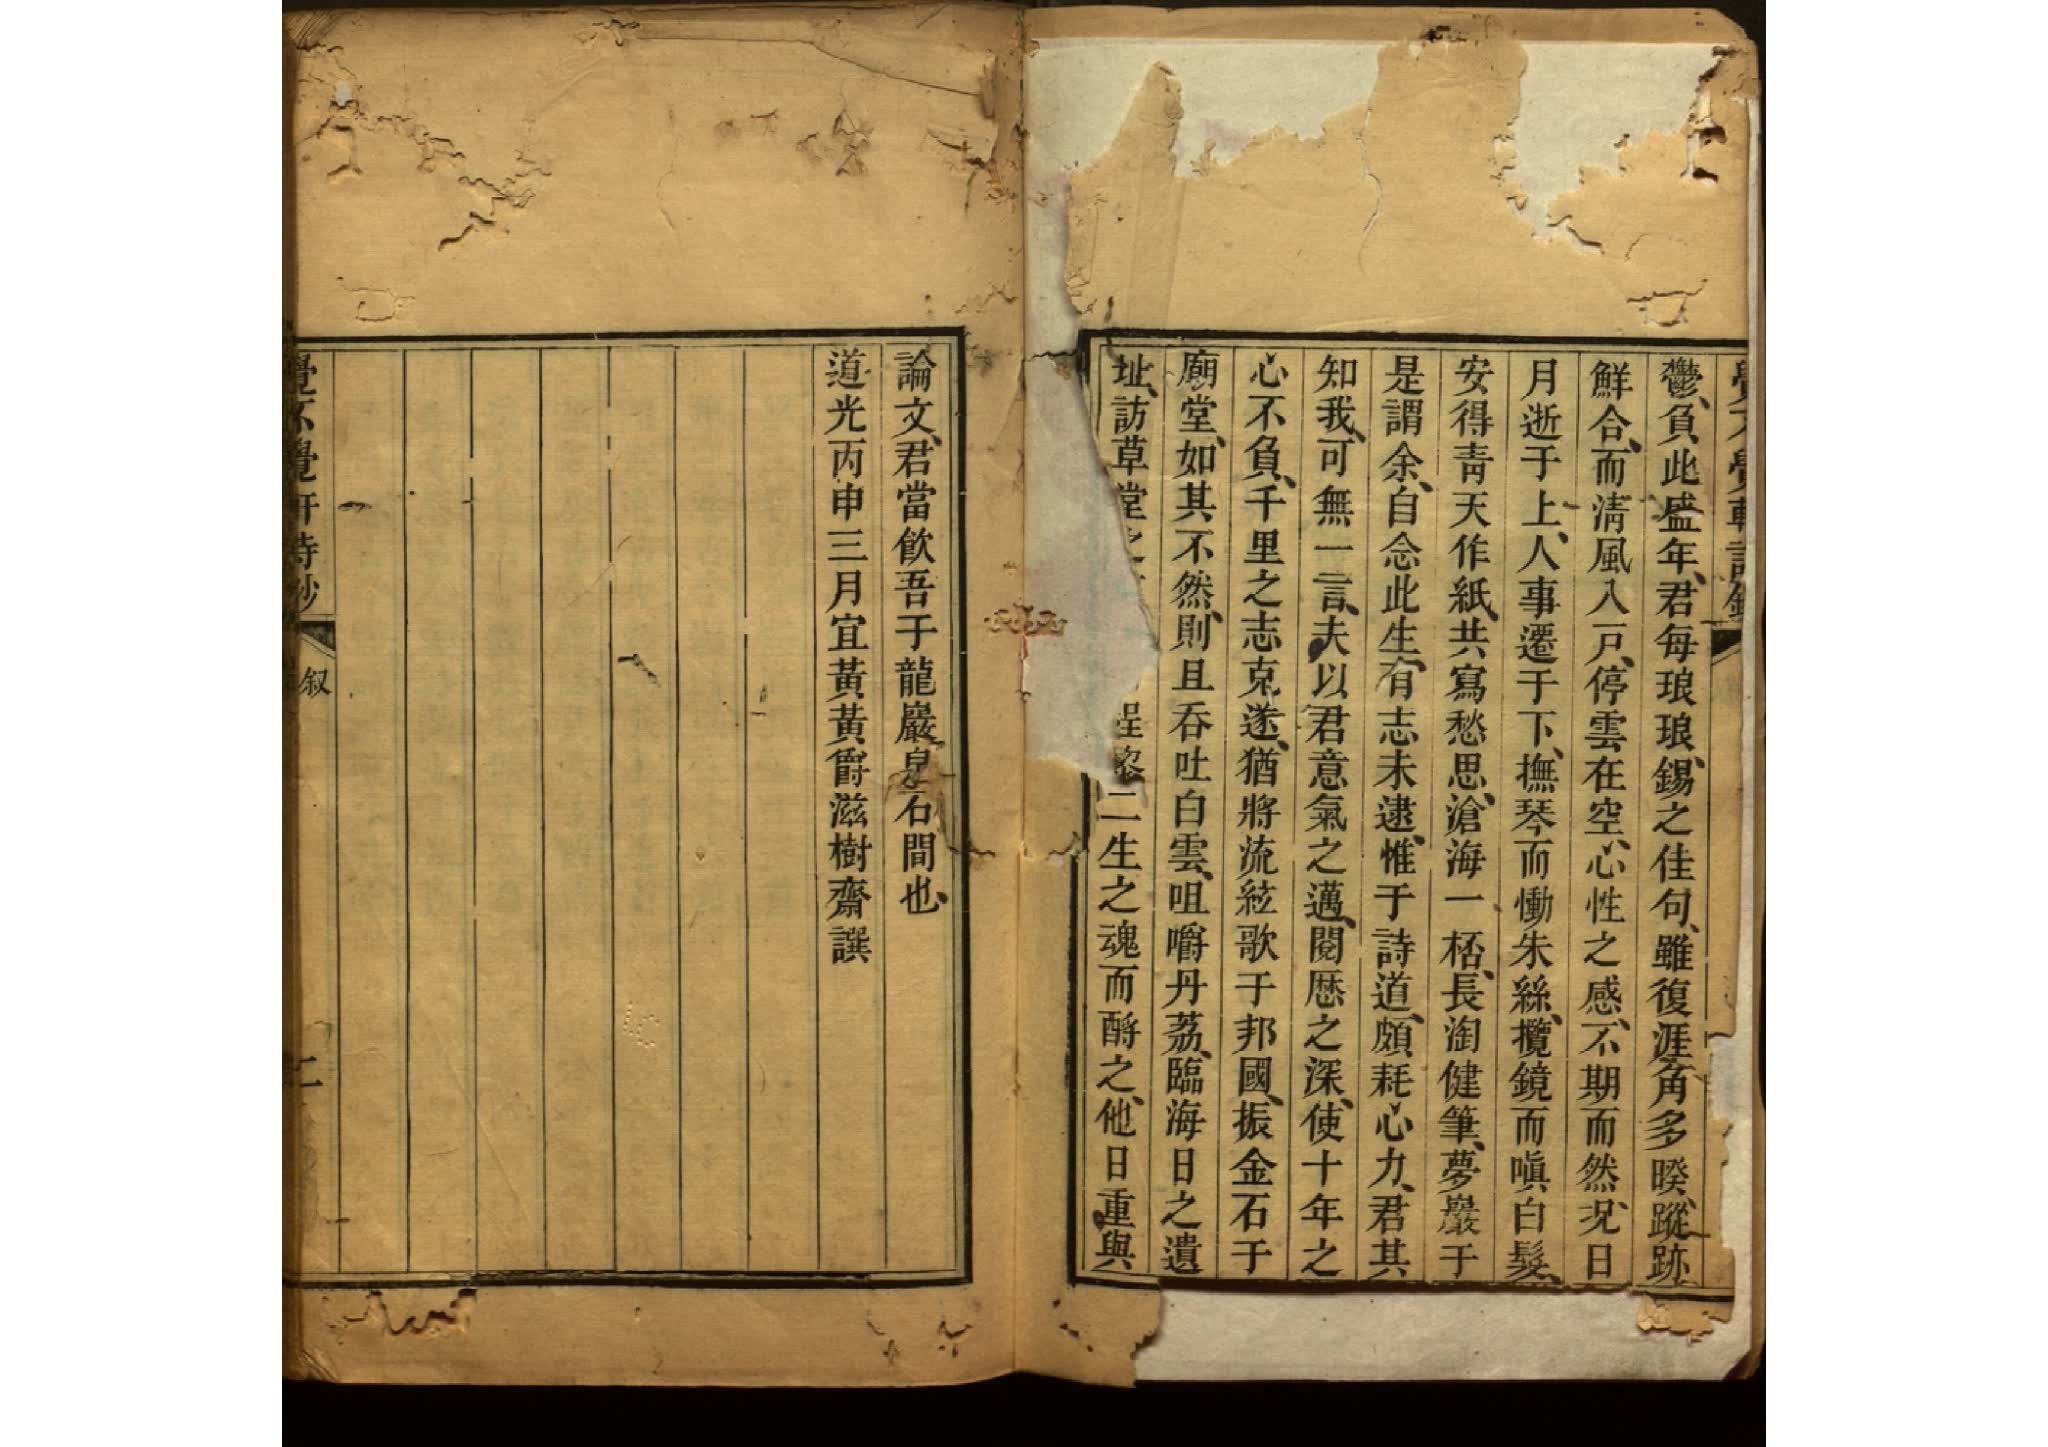 鬱、負此盛年、君每琅琅、錫之佳句、雖復涯角多暌、蹤跡
鮮合、而清風入戸、停雲在空、心性之感、不期而然、況日
月逝于上、人事遷于下、撫琴而慟朱絲、攬鏡而嗔白髮、
安得靑天作紙、共寫愁思、滄海一桮、長淘健筆、夢巖于
是謂余、自念此生有志未逮、惟于詩道、頗耗心力、君其
知我、可無一言、夫以君意氣之邁、閱歷之深、使十年之
心不負、千里之志克遂、猶將流絃歌于邦國、振金石于
廟堂、如其不然、則且吞吐白雲、咀嚼丹荔、臨海日之遺
址、訪草堂之 黎二生之魂而酹之、他日重與
論文、君當飲吾于龍巖泉石間也、
道光丙申三月宜黃黃爵滋樹齋譔
覺不覺軒詩鈔
叙
二